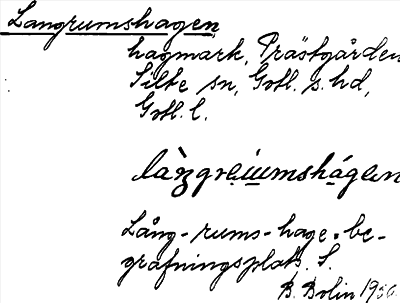 Langrumshagen
hagmark, Prästgården
Silte sn, Gotl. s. hd,
Gotl. l.
Lång-rums-hage. be-
grafningsplats. S.
B. Bolin 1930.